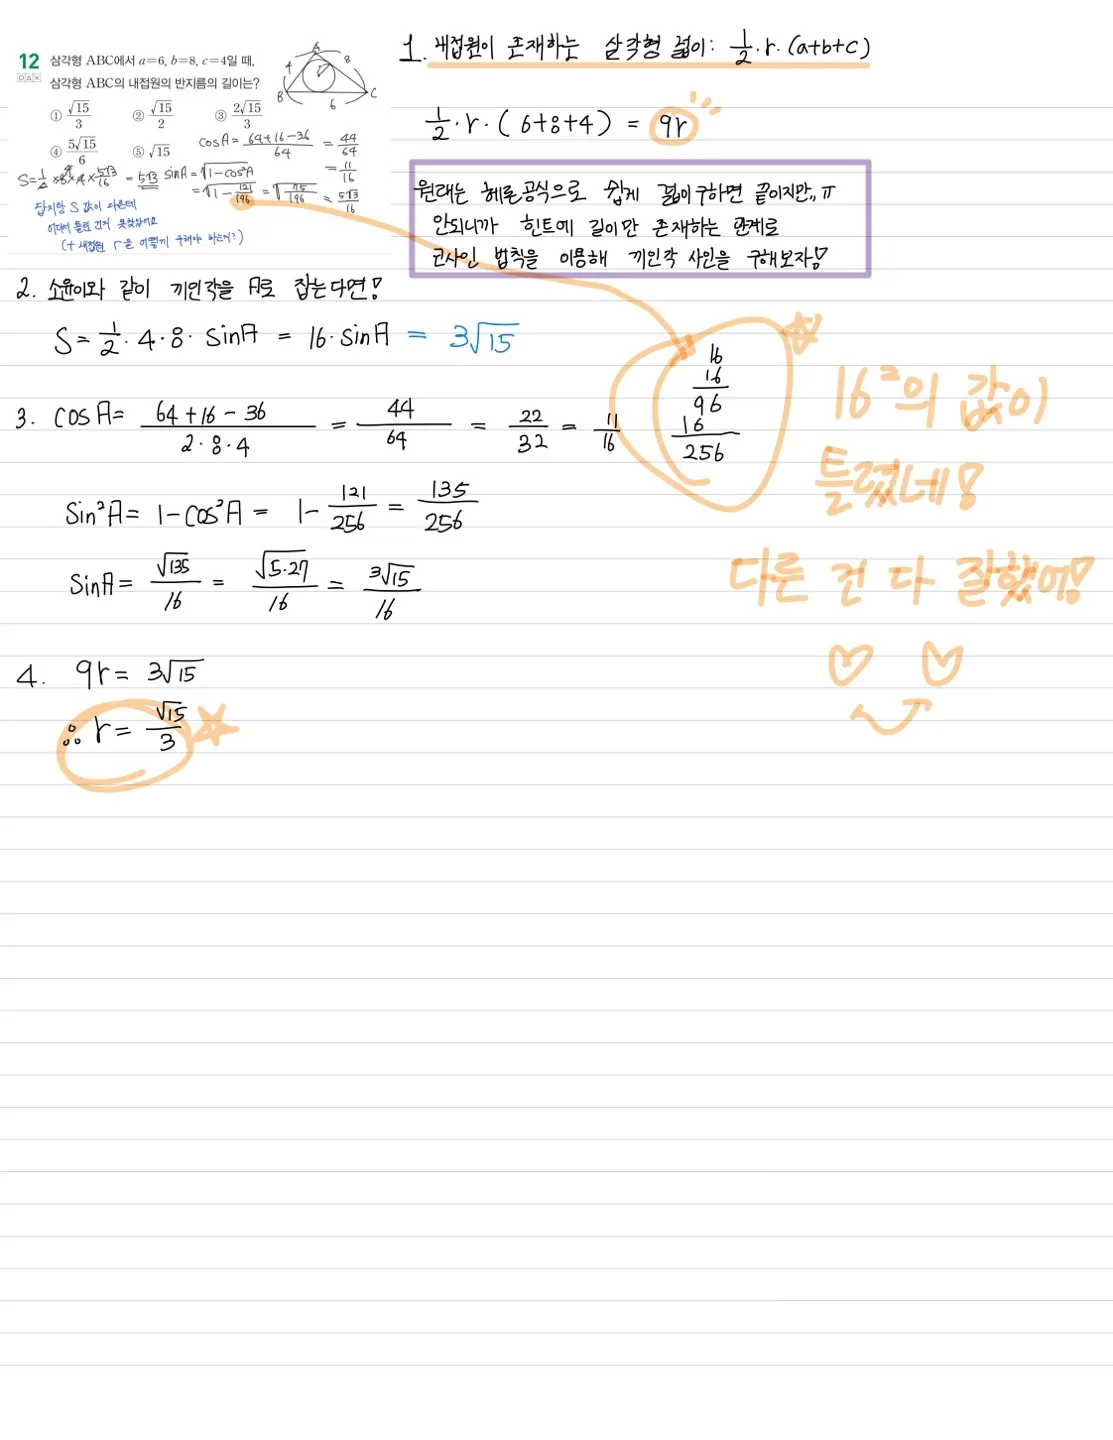 12 삼각형 ABC에서 a=6, b=8, c=4일 때,
삼각형 ABC의 내접원의 반지름의 길이는?
① √15/3 ② √15/2 ③ 2√15/3
④ 5√15/6 ⑤ √15
A
4 8
r
B 6 C
cosA = 64+16-36/64 = 44/64
= 11/16
S=1/2×8×4×5√3/16 = 5√3
sinA = √1-cos²A
= √1-121/196 = √75/196 = 5√3/16
답지랑 S 값이 다른데
어디서 틀린 건지 못찾겠어요
(+ 내접원 r을 어떻게 구해야 하는지?)
1. 내접원이 존재하는 삼각형 넓이: 1/2·r·(a+b+c)
1/2·r·(6+8+4) = 9r
원래는 헤론공식으로 쉽게 넓이구하면 끝이지만,, ㅠ
안되니까 힌트에 길이만 존재하는 관계로
코사인 법칙을 이용해 끼인각 사인을 구해보자!
2. 소윤이와 같이 끼인각을 A로 잡는다면!
S=1/2·4·8·sinA = 16·sinA = 3√15
3. cosA= 64+16-36/2·8·4 = 44/64 = 22/32 = 11/16
16
16
96
16
256
16²의 값이
틀렸네!
Sin²A= 1-cos²A = 1-121/256 = 135/256
SinA= √135/16 = √5·27/16 = 3√15/16
다른 건 다 잘했어!
4. 9r= 3√15
∴ r= √15/3